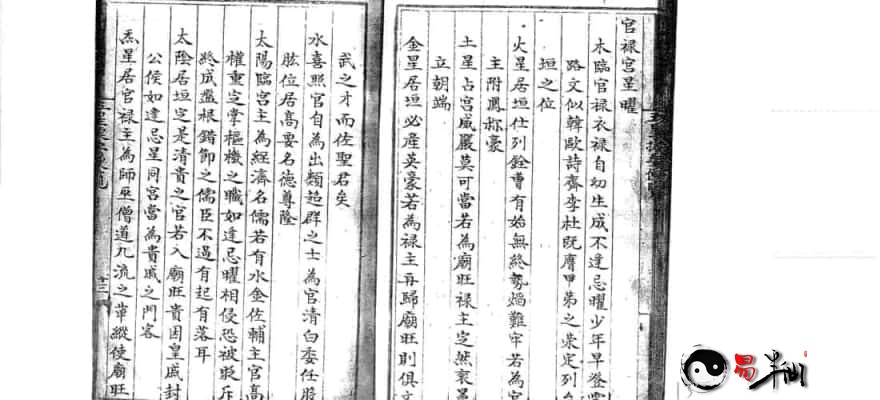 官禄宮星曜
木臨官禄衣禄自幼生成不逢忌曜少年早登雲
路文似韓歐詩齊李杜既膺甲第之榮定列
垣之位
火星居垣仕列銓曹有始無終勢焰難牢若為官
主附鳳称豪
土星占宮威嚴莫可當若為廟旺禄主定然衮
立朝端
金星居垣必產英豪若為禄主再歸廟旺則俱文
武之才而佐聖君矣
水喜照官自為出類超群之士為官清白委任股
肱位居髙要名德尊隆
太陽臨宮主為經濟名儒若有水金佐輔主官髙
權重定掌樞機之職如逢忌曜相侵恐被貶斥
終成盤根錯節之儒臣不過有起有落耳
太陰居垣定是清貴之官若入廟旺貴因皇戚封
公侯如逢忌星同宮當為貴戚之門客
炁星居官禄主為師巫僧道九流之輩縱使廟旺
十三
易半仙